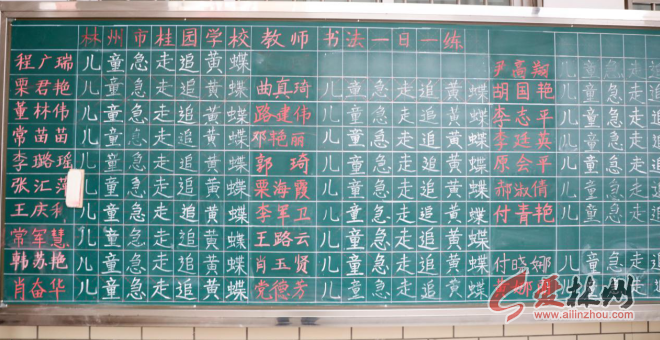 林州市桂园学校教师书法一日一练
程广瑞 儿童急走追黄蝶
尹高翔 儿童急走追
栗君艳 儿童急走追黄蝶 曲真琦 儿童急走追黄蝶 胡国艳 儿童急走追
董林伟 儿童急走追黄蝶 路建伟 儿童急走追黄蝶 李志平 儿童急走追
常苗苗 儿童急走追黄蝶 邓艳丽 儿童急走追黄蝶 李廷英 儿童急走追
李璐瑶 儿童急走追黄蝶 郭琦 儿童急走追黄蝶 原会平 儿童急走追
张汇萍 儿童急走追黄蝶 栗海霞 儿童急走追黄蝶 郝淑倩 儿童急走追
王庆利 儿童急走追黄蝶 李军卫 儿童急走追黄蝶 付青艳 儿童急走追
常军慧 儿童急走追黄蝶 王路云 儿童急走追黄蝶
韩苏艳 儿童急走追黄蝶 肖玉贤 儿童急走追黄蝶 付晓娜 儿童急走追
肖奋华 儿童急走追黄蝶 党德芳 儿童急走追黄蝶 娜
爱林州
www.ailinzhou.com